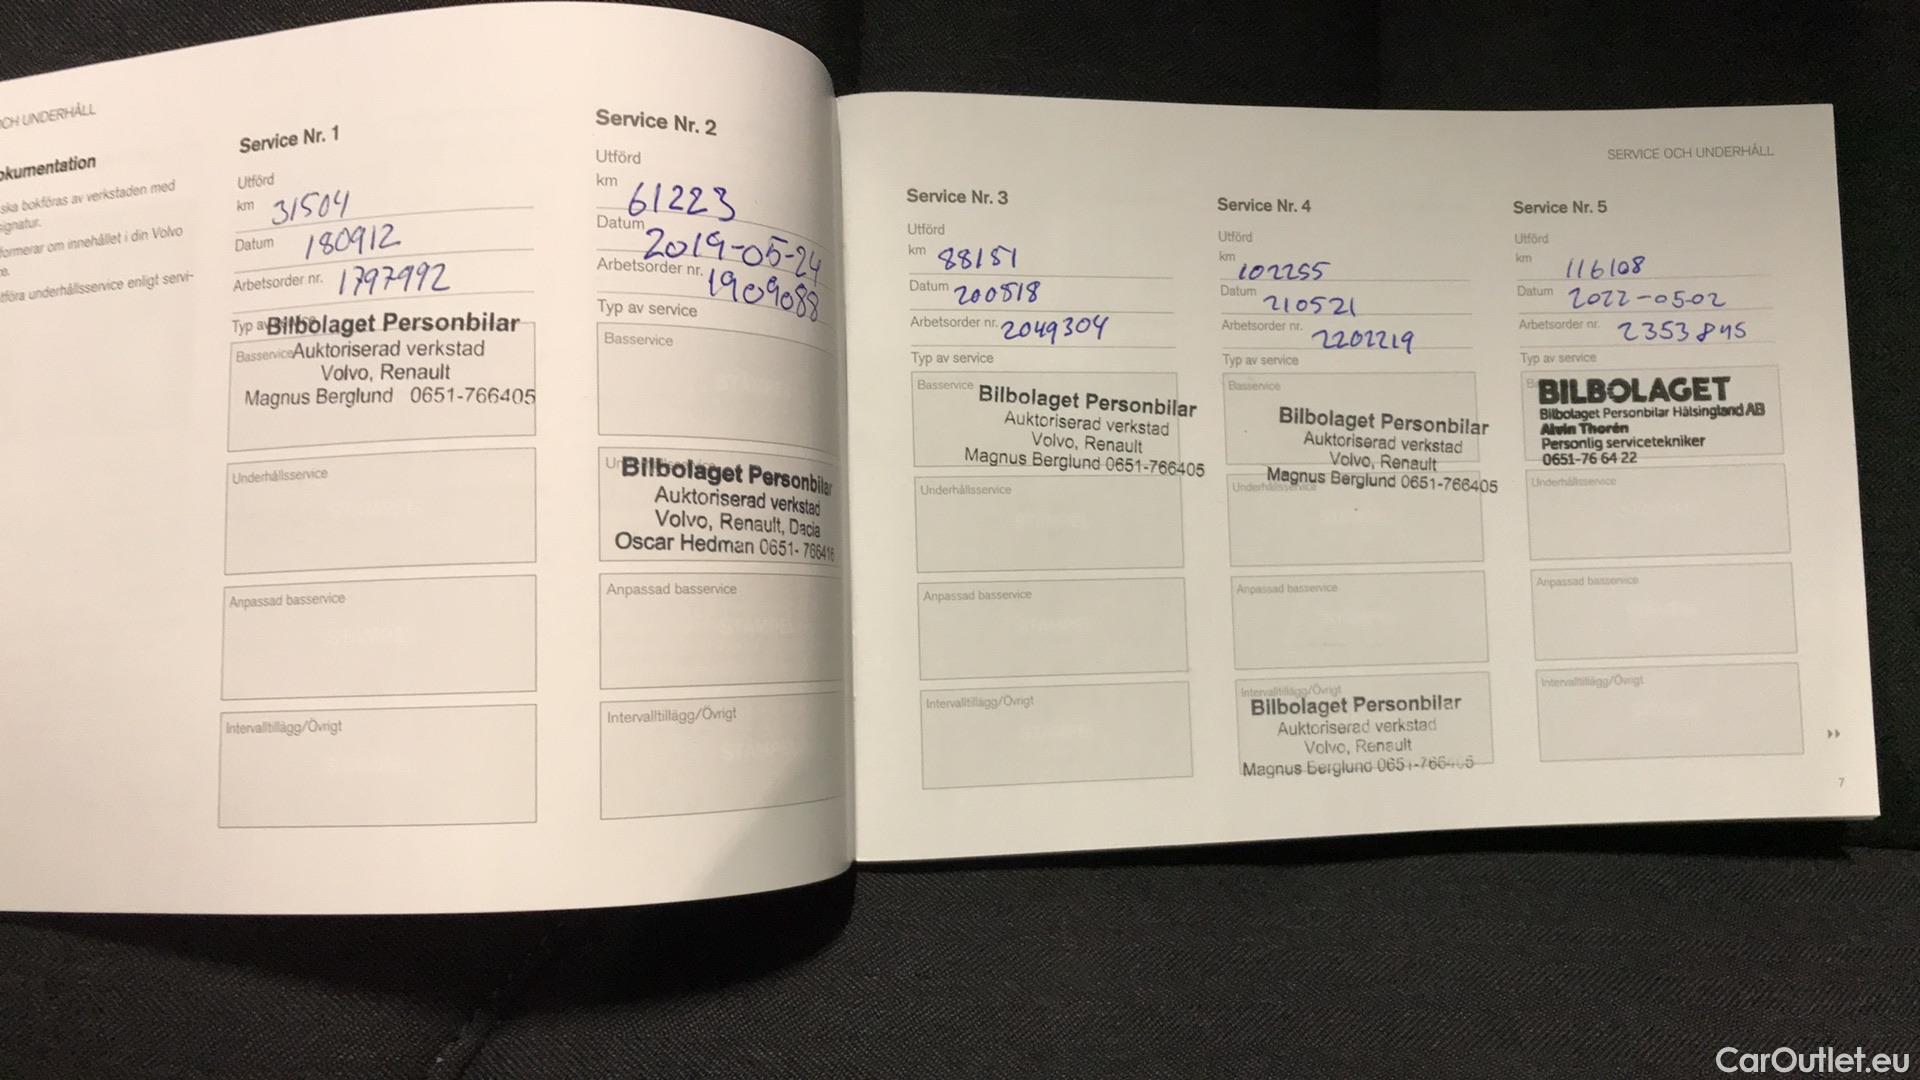 OCH UNDERHÅLL
okumentation
ska bokföras av verkstaden med
signatur.
formerar om innehållet i din Volvo
tföra underhållsservice enligt servi-
Service Nr. 1
Utförd
km 31504
Datum 180912
Arbetsorder nr. 1797992
Typ av
Bilbolaget Personbilar
Basservice
Auktoriserad verkstad
Volvo, Renault
Magnus Berglund 0651-766405
Underhållsservice
Anpassad basservice
Intervalltillägg/Övrigt
Service Nr. 2
Utförd
km 61223
Datum 2019-05-24
Arbetsorder nr. 1909088
Typ av service
Basservice
Bilbolaget Personbilar
Auktoriserad verkstad
Volvo, Renault, Dacia
Oscar Hedman 0651-766416
Anpassad basservice
Intervalltillägg/Övrigt
SERVICE OCH UNDERHÅLL
Service Nr. 3
Utförd
km 88151
Datum 200518
Arbetsorder nr. 2049304
Typ av service
Basservice
Bilbolaget Personbilar
Auktoriserad verkstad
Volvo, Renault
Magnus Berglund 0651-766405
Underhållsservice
Anpassad basservice
Intervalltillägg/Övrigt
Service Nr. 4
Utförd
km 102255
Datum 210521
Arbetsorder nr. 2202219
Typ av service
Basservice
Bilbolaget Personbilar
Auktoriserad verkstad
Volvo, Renault
Magnus Berglund 0651-766405
Underhållsservice
Anpassad basservice
Intervalltillägg/Övrigt
Bilbolaget Personbilar
Auktoriserad verkstad
Volvo, Renault
Magnus Berglund 0651-766405
Service Nr. 5
Utförd
km 116108
Datum 2022-05-02
Arbetsorder nr. 2353845
Typ av service
BILBOLAGET
Bilbolaget Personbilar Hälsingland AB
Alvin Thorén
Personlig servicetekniker
0651-76 64 22
Underhållsservice
Anpassad basservice
Intervalltillägg/Övrigt
7
CarOutlet.eu